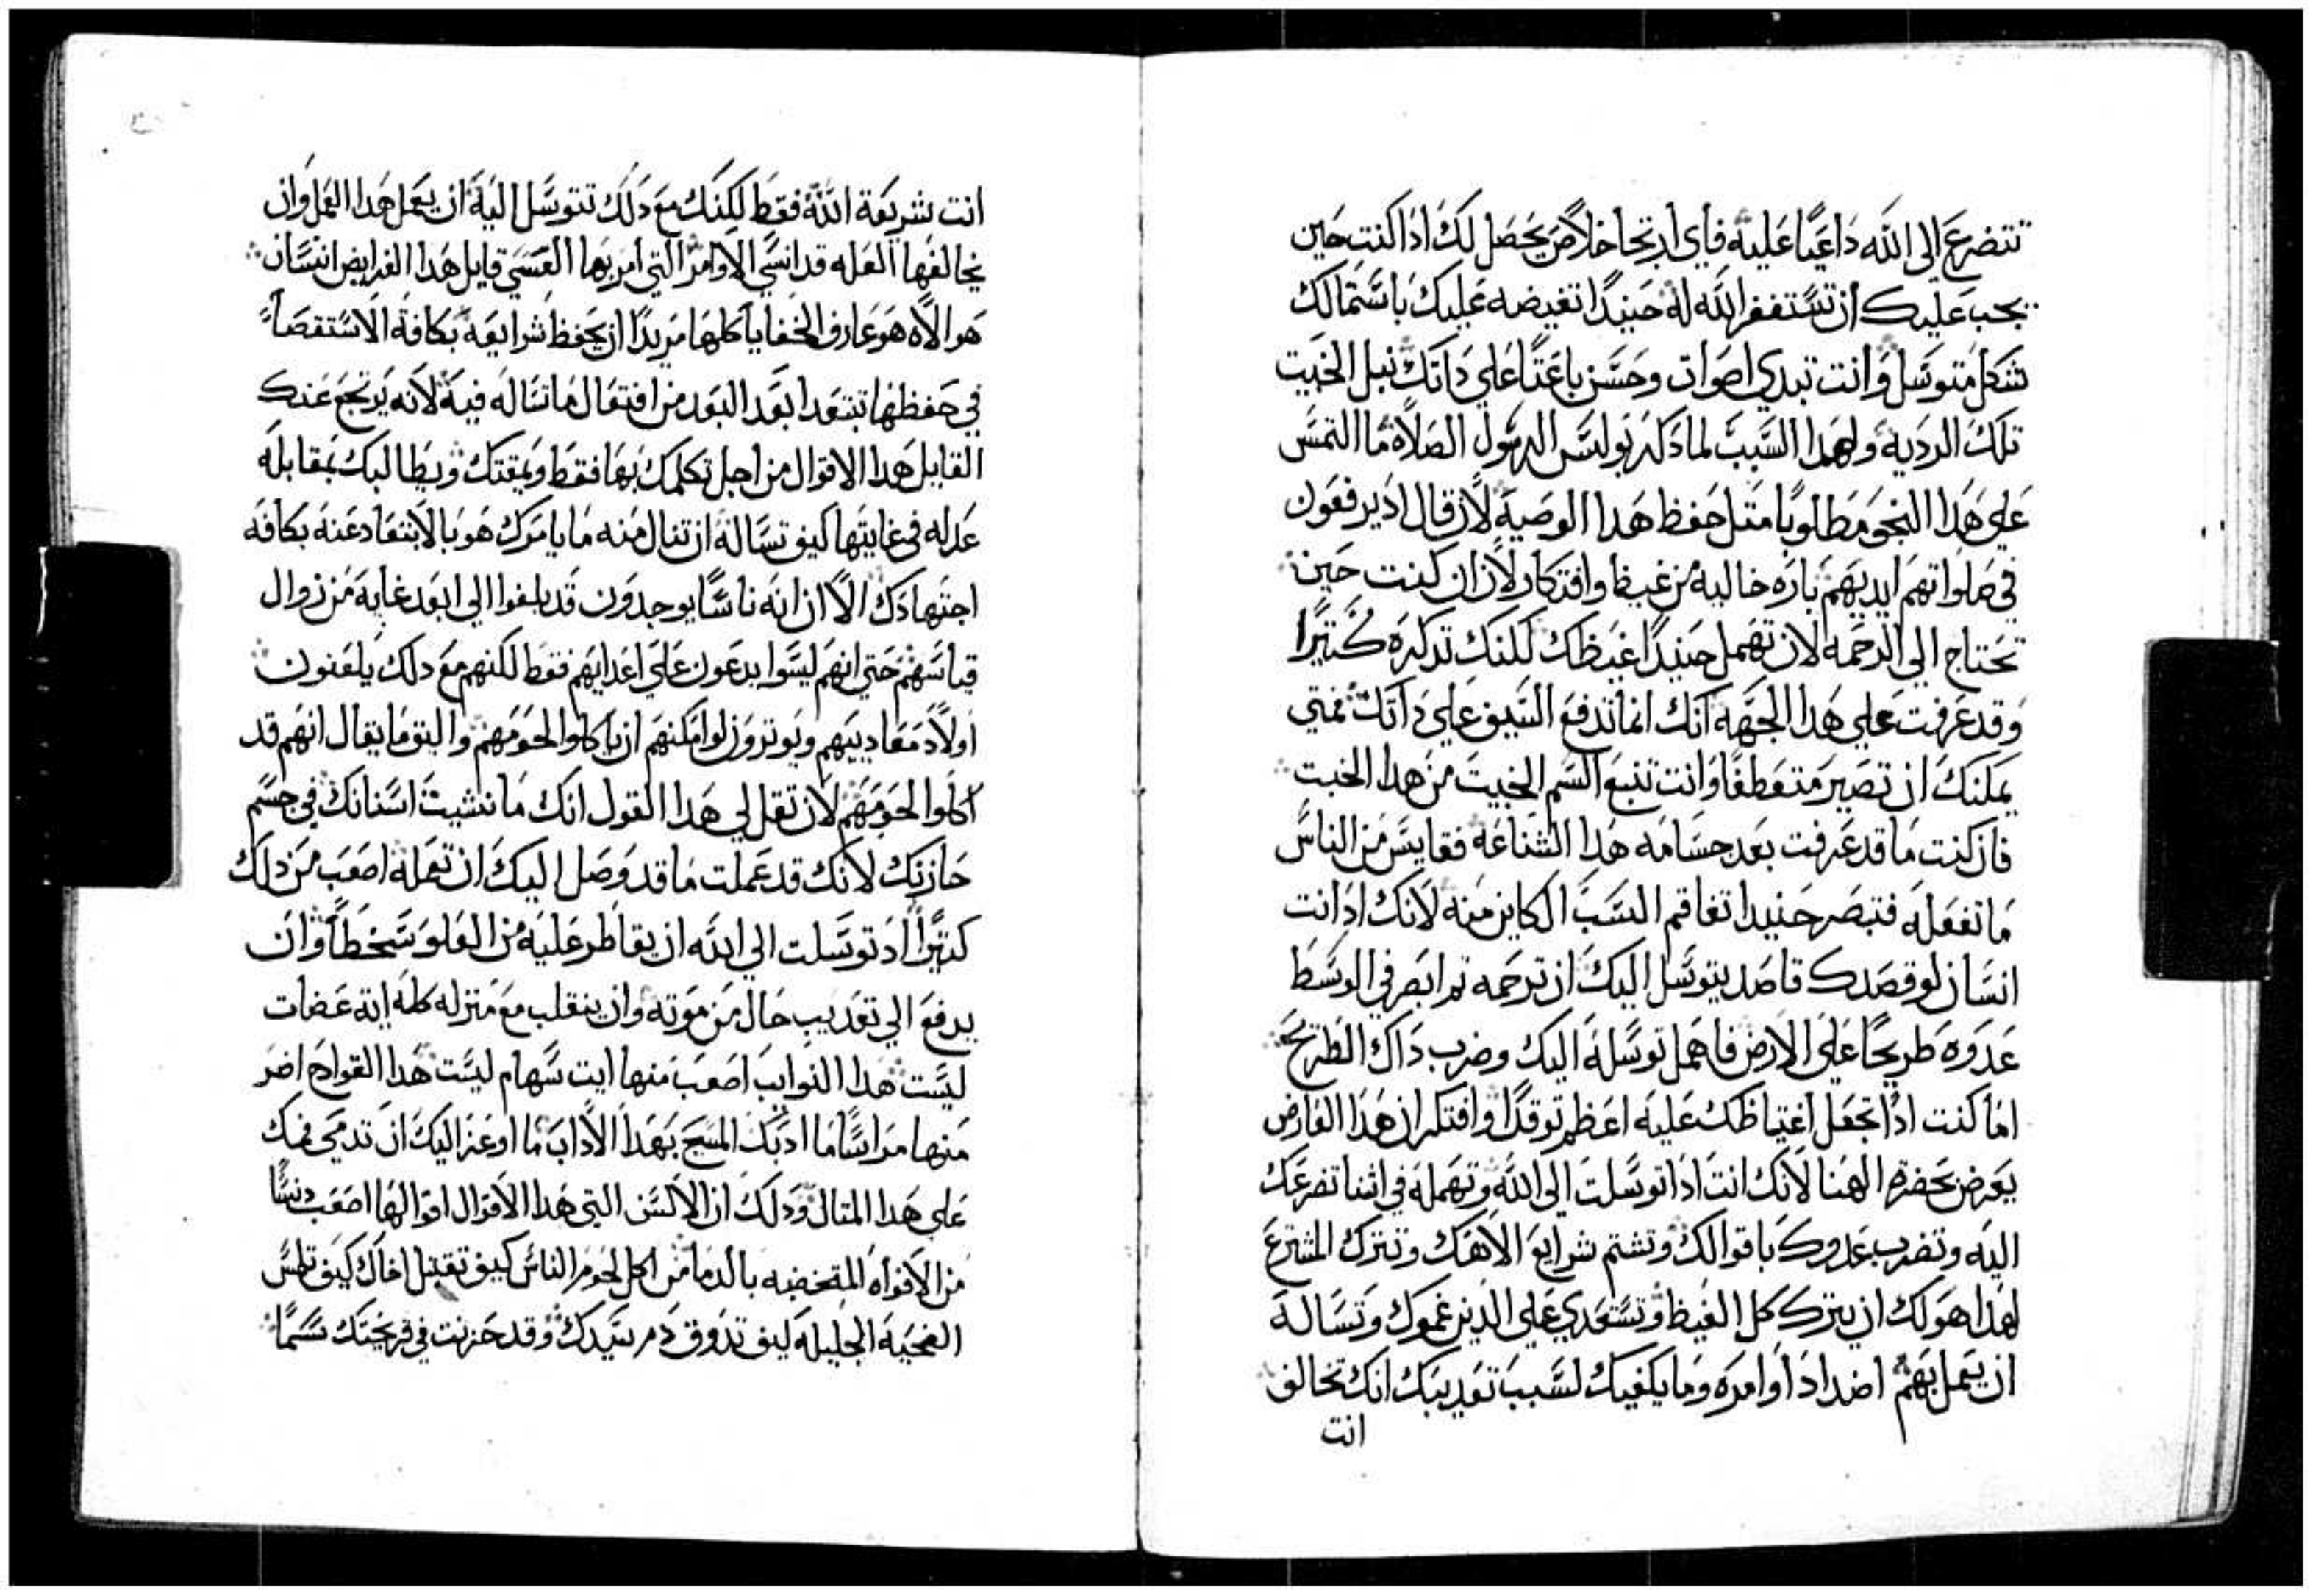 تتضرع الى الله داعيًا عليه فاي ارتجا خلاص يحصل لك اذا كنت حين
يجب عليك ان تستغفر الله له حينيدًا تغيضه عليك باستمالك
شكل متوسل وانت تبدي اصوات وحسن باعتًا على داتك نبل الخبيت
تلك الرديه ولهدا السبب لما دكر بولس الرسول الصلاة ما التمس
على هدا النحو مطلوبا متل حفظ هدا الوصية لان قال اد يرفعون
في صلواتهم ايديهم باره خاليه من غيظ وافتكار لان ان كنت حين
تحتاج الى الرحمه لان تهمل حينيدًا غيظك لكنك تدكره كتيرًا
وقد عرفت على هدا الجهه انك انما تدفع السيف على داتك فمتي
يمكنك ان تصير متعطفًا وانت تنبع السم الخبيت من هدا الخبت
فان كنت ما قد عرفت بعد جسامه هدا الشناعه فقايس من الناس
ما تفعله فتبصر حنيدا تفاقم السبب الكاين منه لانك اد انت
انسان لو قصدك قاصد يتوسل اليك ان ترحمه تم ابصر في الوسط
عدوه طريحًا على الارض فاهمل توسله اليك وضرب داك الطريح
اما كنت ادًا تجعل اغتياظك عليه اعظم توقدًا وافتكر ان هدا العارض
يعرض بحضرة الهنا لانك انت ادا توسلت الى الله وتهمله في اثنا تضرعك
اليه وتضرب عدوك باقوالك وتشتم شرايع الاهك وتترك المشترع
لهدا هو لك ان يترك كل الغيظ وتستعدي على الدين غموك وتساله
ان يعمل بهم اضداد اوامره وما يكفيك لسبب تعديبك انك تخالف
انت
انت شريعة الله فقط لكنك مع دلك تتوسل اليه ان يعمل هدا العمل وان
يخالفها العله قد انسي الاوامر التي امر بها العسي قايل هدا الفرايض انسان
هو الاه هو عارف الخفايا كلها مريدًا ان يحفظ شرايعه بكافة الاستقصا
في حفظها تبتعد ابعد البعد من افتعال ما تساله فيه لانه يرتجع عنك
القايل هدا الاقوال من اجل تكلمك بها فقط ويمقتك ويطالبك بمقابله
عدله في غايتها كيف تساله ان تنال منه ما يامرك هو بالابتعاد عنه بكافه
اجتهادك الا ان انه ناسًا يوجدون قد بلغوا الى ابعد غاية من زوال
قياسهم حتى انهم ليسوا يدعون على اعدايهم فقط لكنهم مع دلك يلعنون
اولاد معاديبهم ويوتروز لو امكنهم ان ياكلوا لحومهم واليق ما يقال انهم قد
اكلوا لحومهم لان تقل لي هدا القول انك ما نشبت اسنانك في جسم
حازنك لانك قد عملت ما قد وصل اليك ان تعمله اصعب من دلك
كتيرًا اد توسلت الى الله ان يقاطر عليه من العلو سخطًا وان
يدفع الى تعديب حال من موته وان ينقلب مع منزله كله اية عضات
ليست هدا النوايب اصعب منها ايت سهام ليست هدا القوادح اضر
منها مراسًا ما ادبك المسيح بهدا الاداب ما اوعز اليك ان تدمي فمك
على هدا المتال ودلك ان الالسن التي هدا الاقوال اقوالها اصعب دنسًا
من الافواه المتخضبه بالدما من اكل لحوم الناس كيف تقبل اخاك كيف تلمس
الضحية الجليله كيف تدوق دم سيدك وقد حزنت في قريحتك سمًا